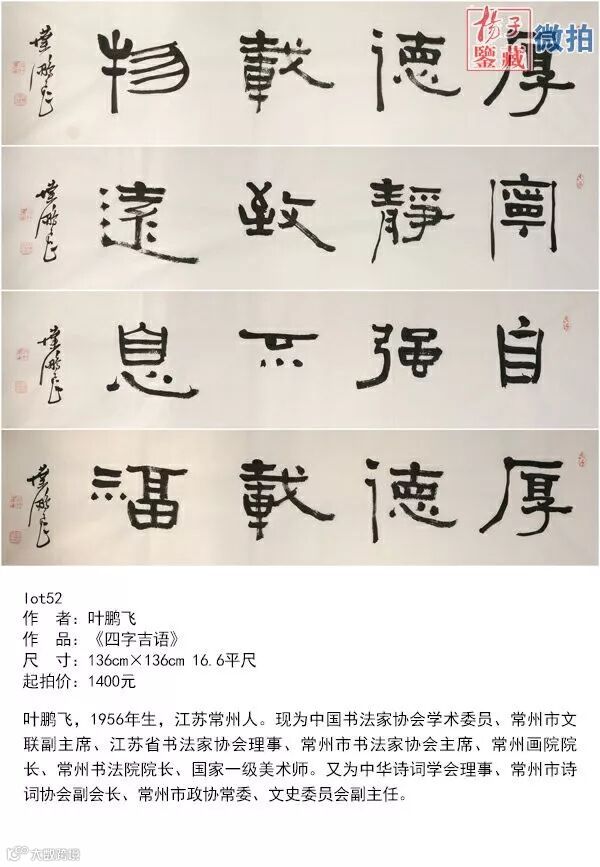 杨子
鉴藏
微拍
厚德載物
葉鵬飛
寧靜致遠
葉鵬飛
自强不息
葉鵬飛
厚德載福
葉鵬飛
lot52
作 者：叶鹏飞
作 品：《四字吉语》
尺 寸：136cm×136cm 16.6平尺
起拍价：1400元
叶鹏飞，1956年生，江苏常州人。现为中国书法家协会学术委员、常州市文
联副主席、江苏省书法家协会理事、常州市书法家协会主席、常州画院院
长、常州书法院院长、国家一级美术师。又为中华诗词学会理事、常州市诗
词协会副会长、常州市政协常委、文史委员会副主任。
大数跨境